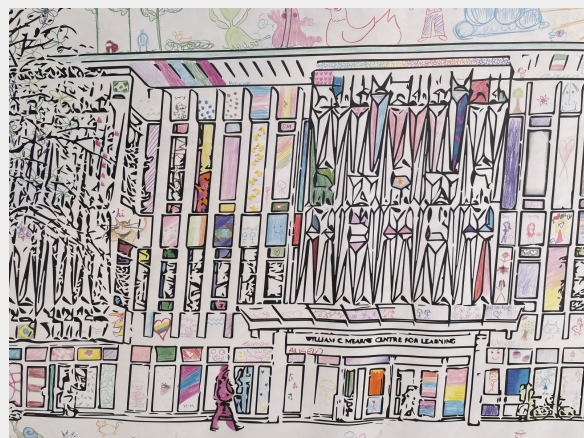 WILLIAM C. MEARNS CENTRE FOR LEARNING